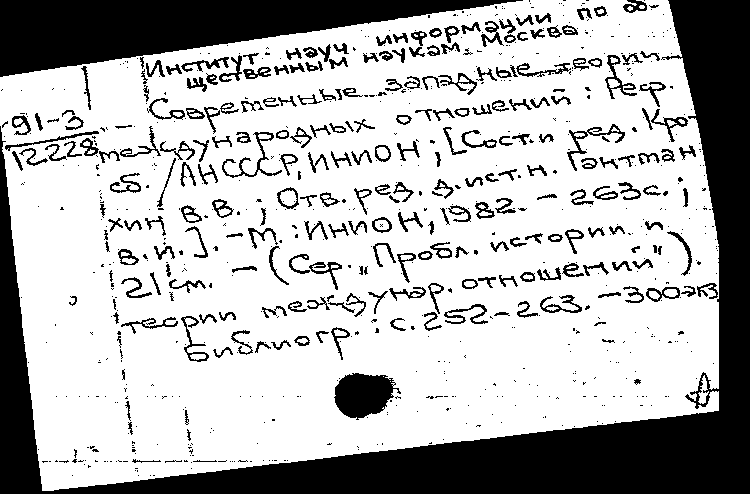 Институт науч. информации по об-
щественным наукам. Москва.
Современные западные теории
91-3
12228
международных отношений : Реф.
сб. / АН СССР, ИНИОН ; [Сост. и ред. Кро-
хин В.В. ; Отв. ред. д.ист.н. Гантман
В.И.]. – М. : ИНИОН, 1982. – 263 с. ;
21 см. – (Сер. „Пробл. истории и
теории междунар. отношений").
Библиогр. : с. 252-263. – 300 экз